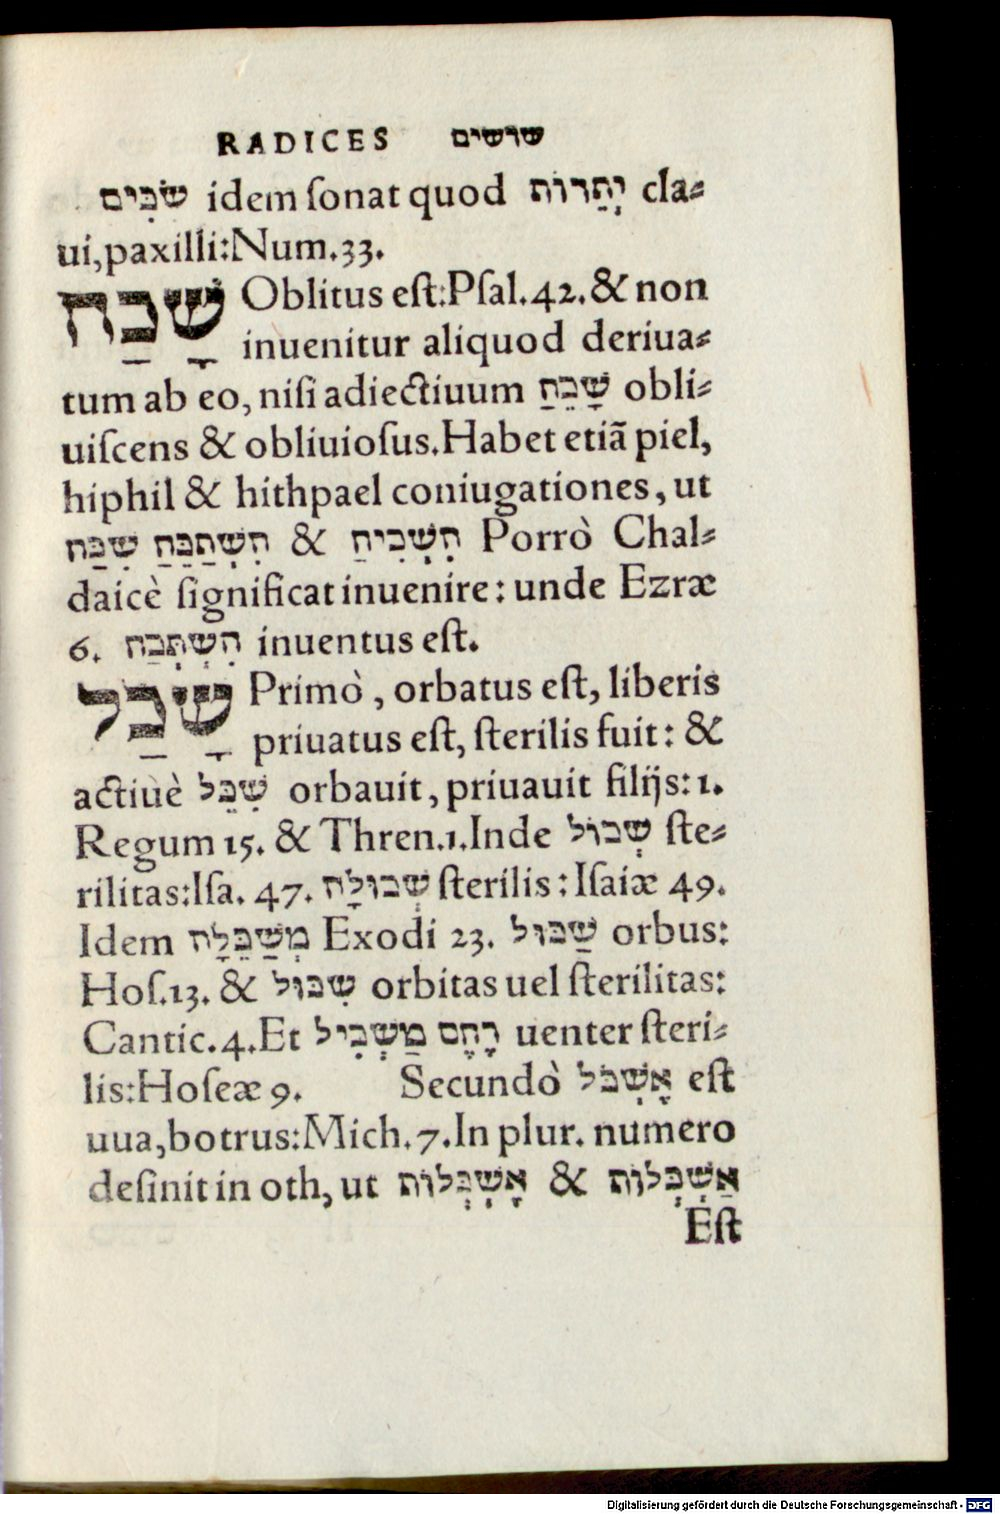 RADICES שרשים
שׂכִּים idem ſonat quod יְתֵרוֹת cla⸗
ui,paxilli:Num.33.
שָׁכַח Oblitus eſt:Pſal.42.& non
inuenitur aliquod deriua⸗
tum ab eo, niſi adiectiuum שָׁכֵחַ obli⸗
uiſcens & obliuioſus.Habet etiã piel,
hiphil & hithpael coniugationes, ut
שִׁכַּח הִשְׁתַּכַּח & הִשְׁכִּיחַ Porrò Chal⸗
daicè ſignificat inuenire: unde Ezræ
6. הִשְׁתְּכַח inuentus eſt.
שָׁכַל Primò, orbatus eſt, liberis
priuatus eſt, ſterilis fuit: &
actiuè שִׁכֵּל orbauit, priuauit filijs: 1.
Regum 15. & Thren.1.Inde שְׁכוֹל ſte⸗
rilitas:Iſa. 47. שְׁכוּלָה ſterilis: Iſaiæ 49.
Idem מְשַׁכֵּלָה Exodi 23. שַׁכּוּל orbus:
Hoſ.13. & שִׁכּוּל orbitas uel ſterilitas:
Cantic.4.Et רֶחֶם מַשְׁכִּיל uenter ſteri⸗
lis:Hoſeæ 9. Secundò אֶשְׁכֹּל eſt
uua,botrus:Mich.7.In plur. numero
deſinit in oth, ut אֶשְׁכְּלוֹת & אַשְׁכְּלוֹת
Eſt
Digitalisierung gefördert durch die Deutsche Forschungsgemeinschaft - DFG